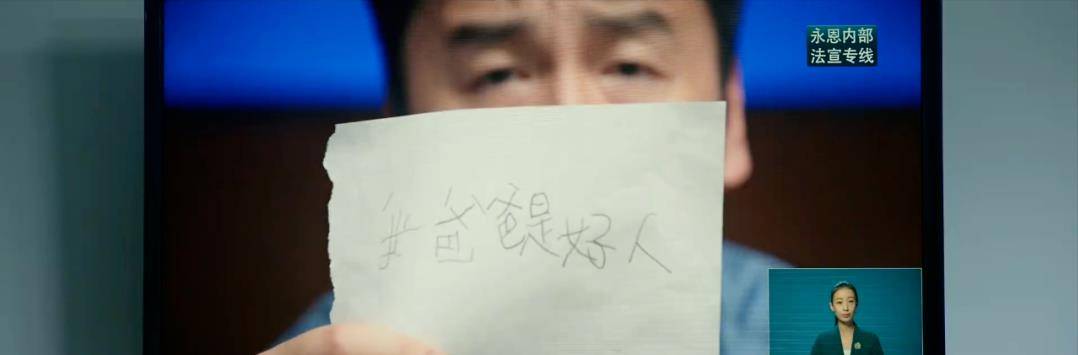 永恩内部
法宣专线
#爸爸是好人